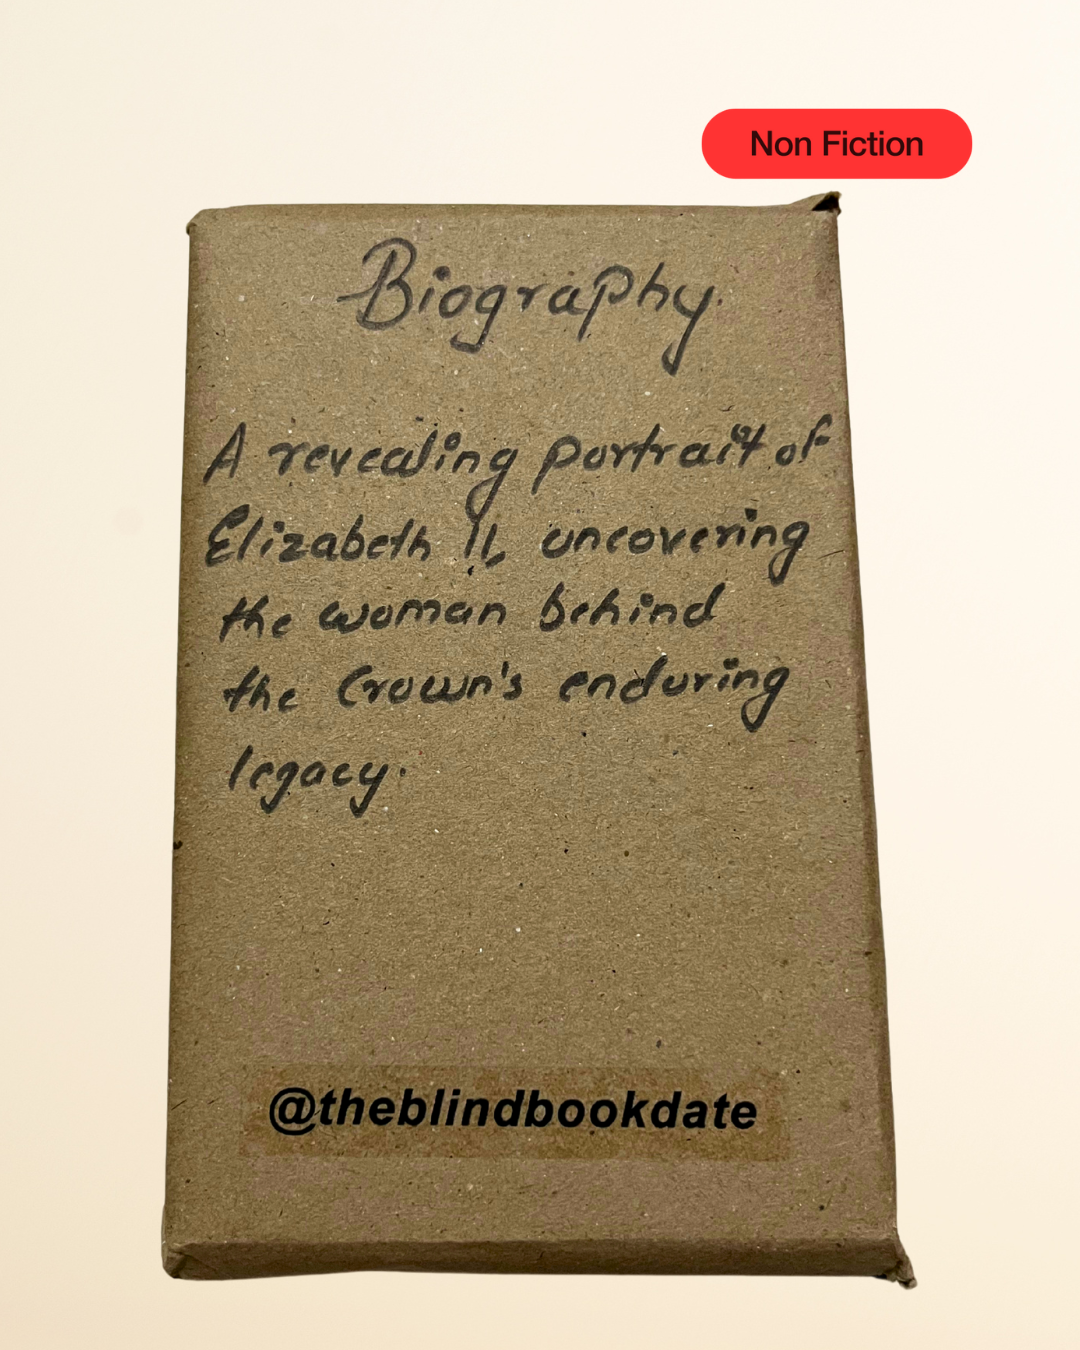 Non Fiction
Biography
A revealing portrait of
Elizabeth II, uncovering
the woman behind
the Crown's enduring
legacy.
@theblindbookdate